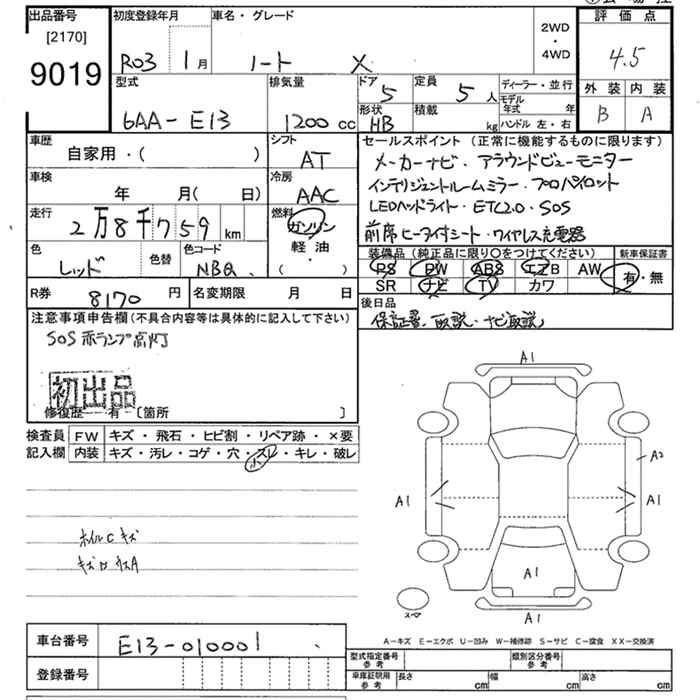 出品番号
[2170]
9019
初度登録年月
R03 1月
車名・グレード
ノート X
2WD
・
4WD
評価点
4.5
外装 内装
B A
型式
6AA-E13
排気量
1200 cc
ドア
5
定員
5 人
形状
HB
積載
kg
ディーラー・並行
モデル年式 年
ハンドル 左・右
車歴
自家用・( )
シフト
AT
車検
年 月( 日)
冷房
AAC
走行
2万8千759 km
燃料
ガソリン
軽・油
( )
色
レッド
色替
色コード
NBQ
R券
8170 円
名変期限 月 日
セールスポイント (正常に機能するものに限ります)
メーカーナビ・アラウンドビューモニター
インテリジェントルームミラー・プロパイロット
LEDヘッドライト・ETC2.0・SOS
前席ヒーター付シート・ワイヤレス充電器
装備品(純正品に限り○をつけてください)
新車保証書
PS PW ABS エアB AW
SR ナビ TV カワ
有・無
後日品
保証書、取説・ナビ取説
注意事項申告欄(不具合内容等は具体的に記入して下さい)
SOS赤ランプ点灯
初出品
修復歴 有・〔箇所 〕
検査員記入欄
FW キズ・飛石・ヒビ割・リペア跡・×要
内装 キズ・汚レ・コゲ・穴・スレ・キレ・破レ
小
ホイルCキズ
A1
A2
A1
A1
A1
A1
スペア
A-キズ E-エクボ U-凹み W-補修跡 S-サビ C-腐食 XX-交換済
車台番号
E13-010001
登録番号
型式指定番号
参考
類別区分番号
参考
車庫証明用
参考
長さ cm
幅 cm
高さ cm